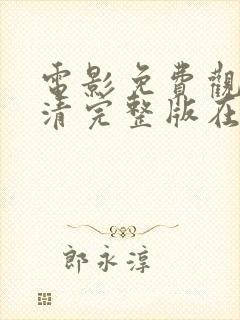 電影免費觀
清完整版在
郎永淳